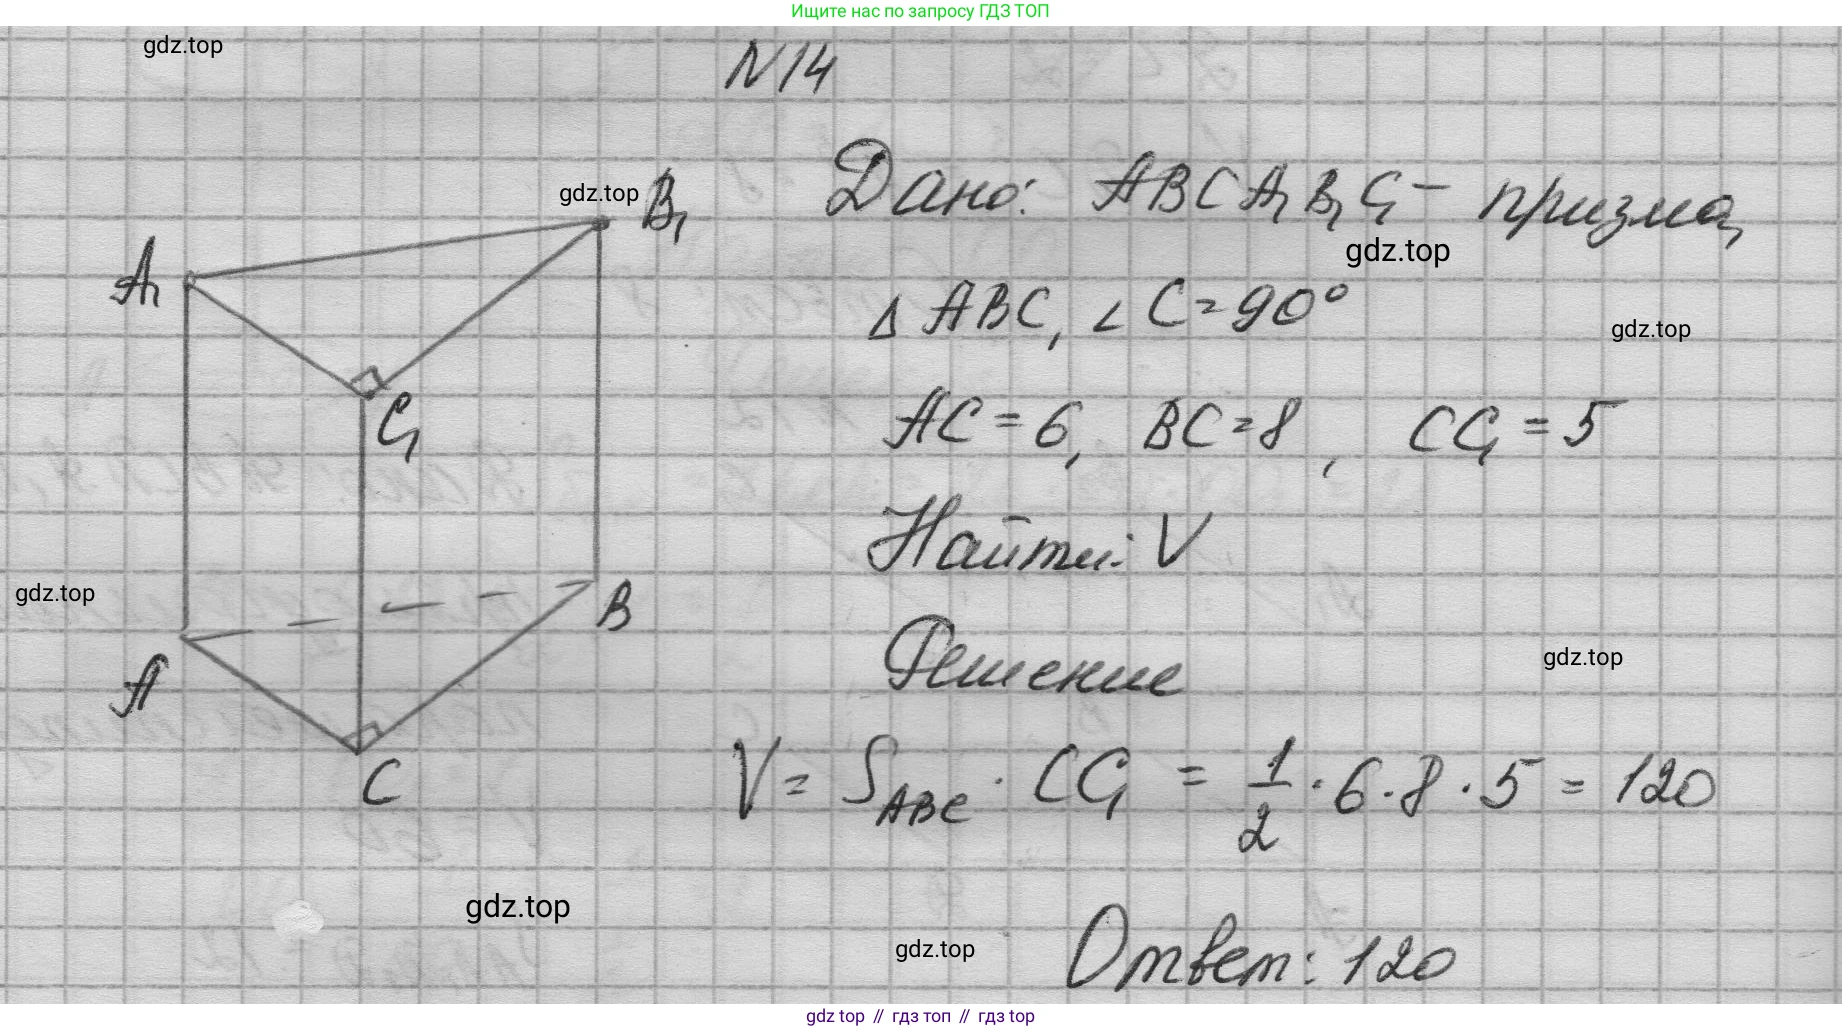 Ищите нас по запросу ГДЗ ТОП
gdz.top
N14
gdz.top
B₁
Дано: ABCA₁B₁C₁ – призма,
gdz.top
A₁
△ ABC, ∠ C = 90°
gdz.top
C₁
AC = 6, BC = 8, CC₁ = 5
Найти: V
gdz.top
B
Решение
gdz.top
A
C
V = S_ABC · CC₁ = 1/2 · 6 · 8 · 5 = 120
gdz.top
gdz.top
Ответ: 120
gdz top // гдз топ // гдз top